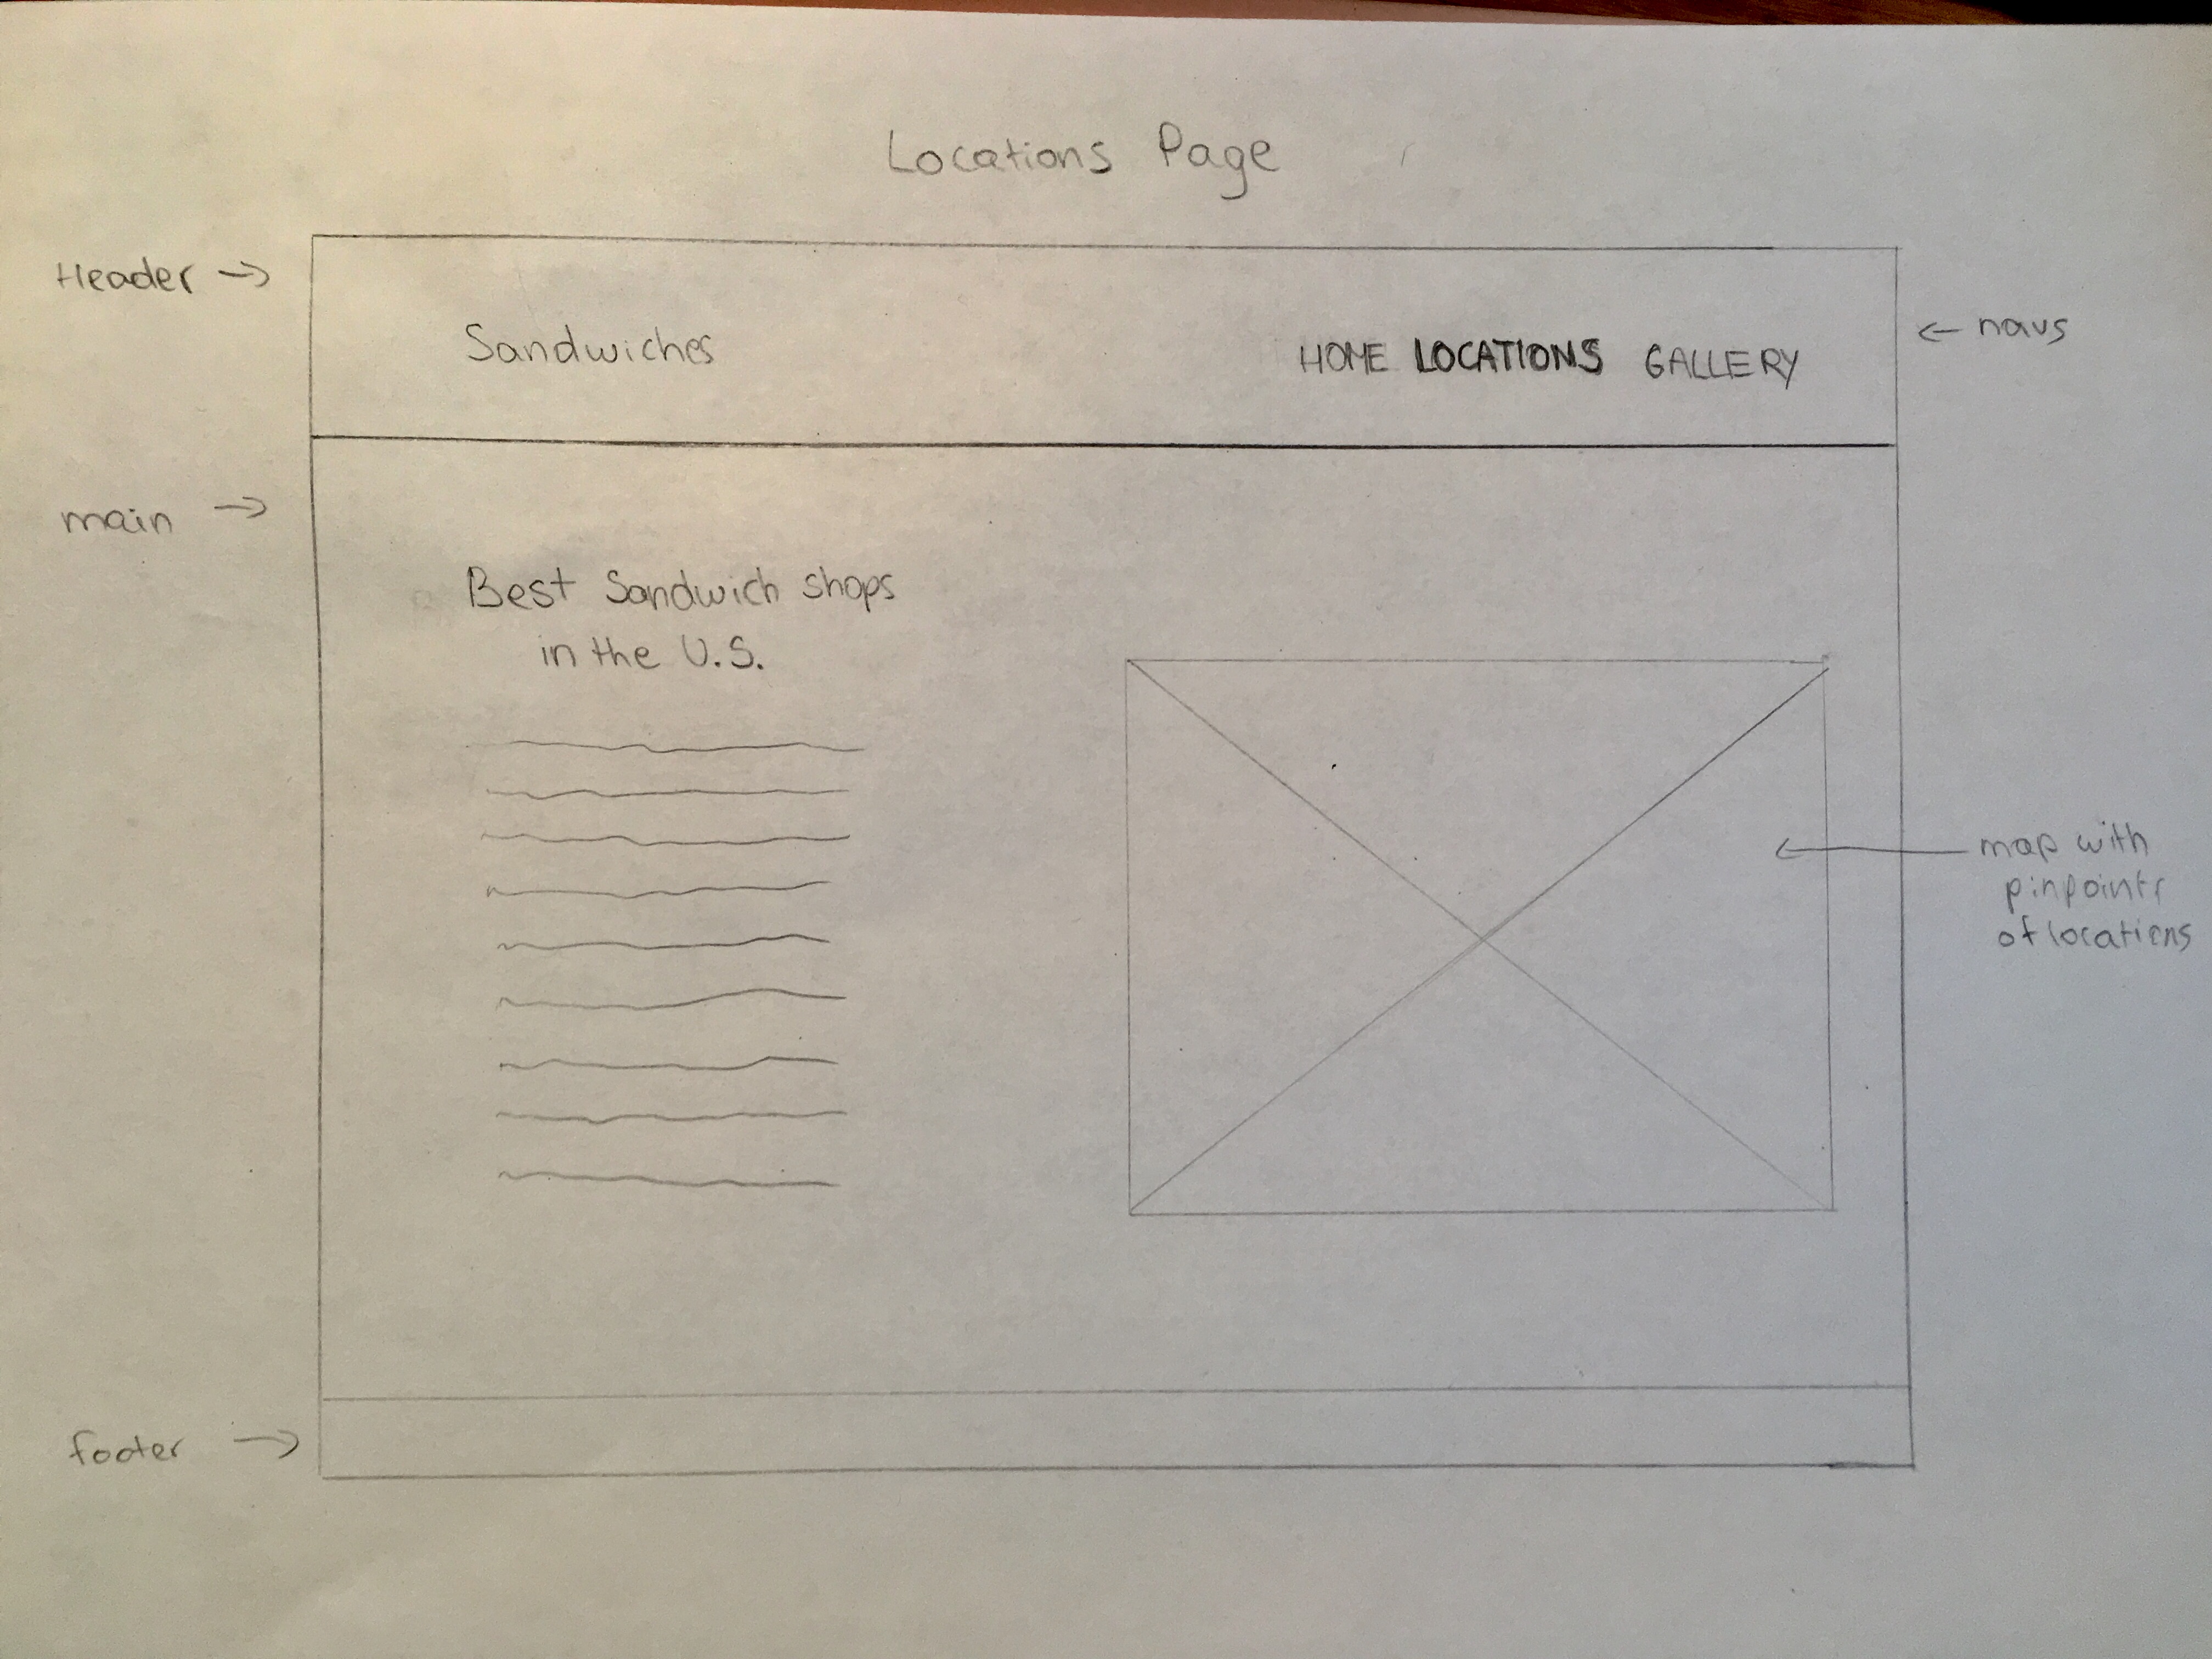 Locations Page
Header →
Sandwiches
HOME LOCATIONS GALLERY
← navs
main →
Best Sandwich shops
in the U.S.
map with
pinpoints
of locations
footer →